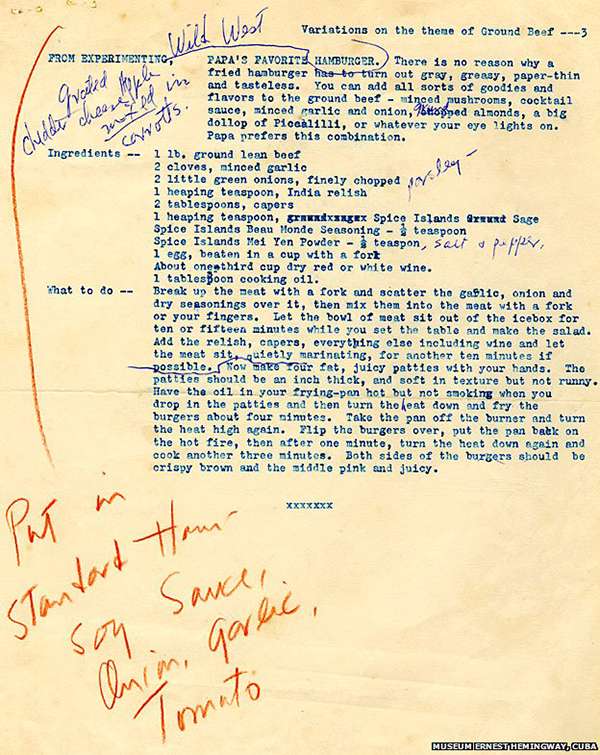 Variations on the theme of Ground Beef ---3
Wild West
FROM EXPERIMENTING, PAPA'S FAVORITE HAMBURGER. There is no reason why a
fried hamburger has to turn out gray, greasy, paper-thin
and tasteless. You can add all sorts of goodies and
flavors to the ground beef - minced mushrooms, cocktail
sauce, minced garlic and onion, chopped almonds, a big
dollop of Piccalilli, or whatever your eye lights on.
Papa prefers this combination.
grated apple
chedder cheese
mixed in
carrots.
Ingredients -- 1 lb. ground lean beef
2 cloves, minced garlic
2 little green onions, finely chopped parsley -
1 heaping teaspoon, India relish
2 tablespoons, capers
1 heaping teaspoon, Spice Islands Sage
Spice Islands Beau Monde Seasoning - ½ teaspoon
Spice Islands Mei Yen Powder - ½ teaspon, salt & pepper.
1 egg, beaten in a cup with a fork
About one third cup dry red or white wine.
1 tablespoon cooking oil.
What to do -- Break up the meat with a fork and scatter the garlic, onion and
dry seasonings over it, then mix them into the meat with a fork
or your fingers. Let the bowl of meat sit out of the icebox for
ten or fifteen minutes while you set the table and make the salad.
Add the relish, capers, everything else including wine and let
the meat sit, quietly marinating, for another ten minutes if
possible. Now make four fat, juicy patties with your hands. The
patties should be an inch thick, and soft in texture but not runny.
Have the oil in your frying-pan hot but not smoking when you
drop in the patties and then turn the heat down and fry the
burgers about four minutes. Take the pan off the burner and turn
the heat high again. Flip the burgers over, put the pan back on
the hot fire, then after one minute, turn the heat down again and
cook another three minutes. Both sides of the burgers should be
crispy brown and the middle pink and juicy.
xxxxxxx
Put in
Standard Ham-
Soy Sauce,
Onion, garlic,
Tomato
MUSEUM ERNEST HEMINGWAY, CUBA